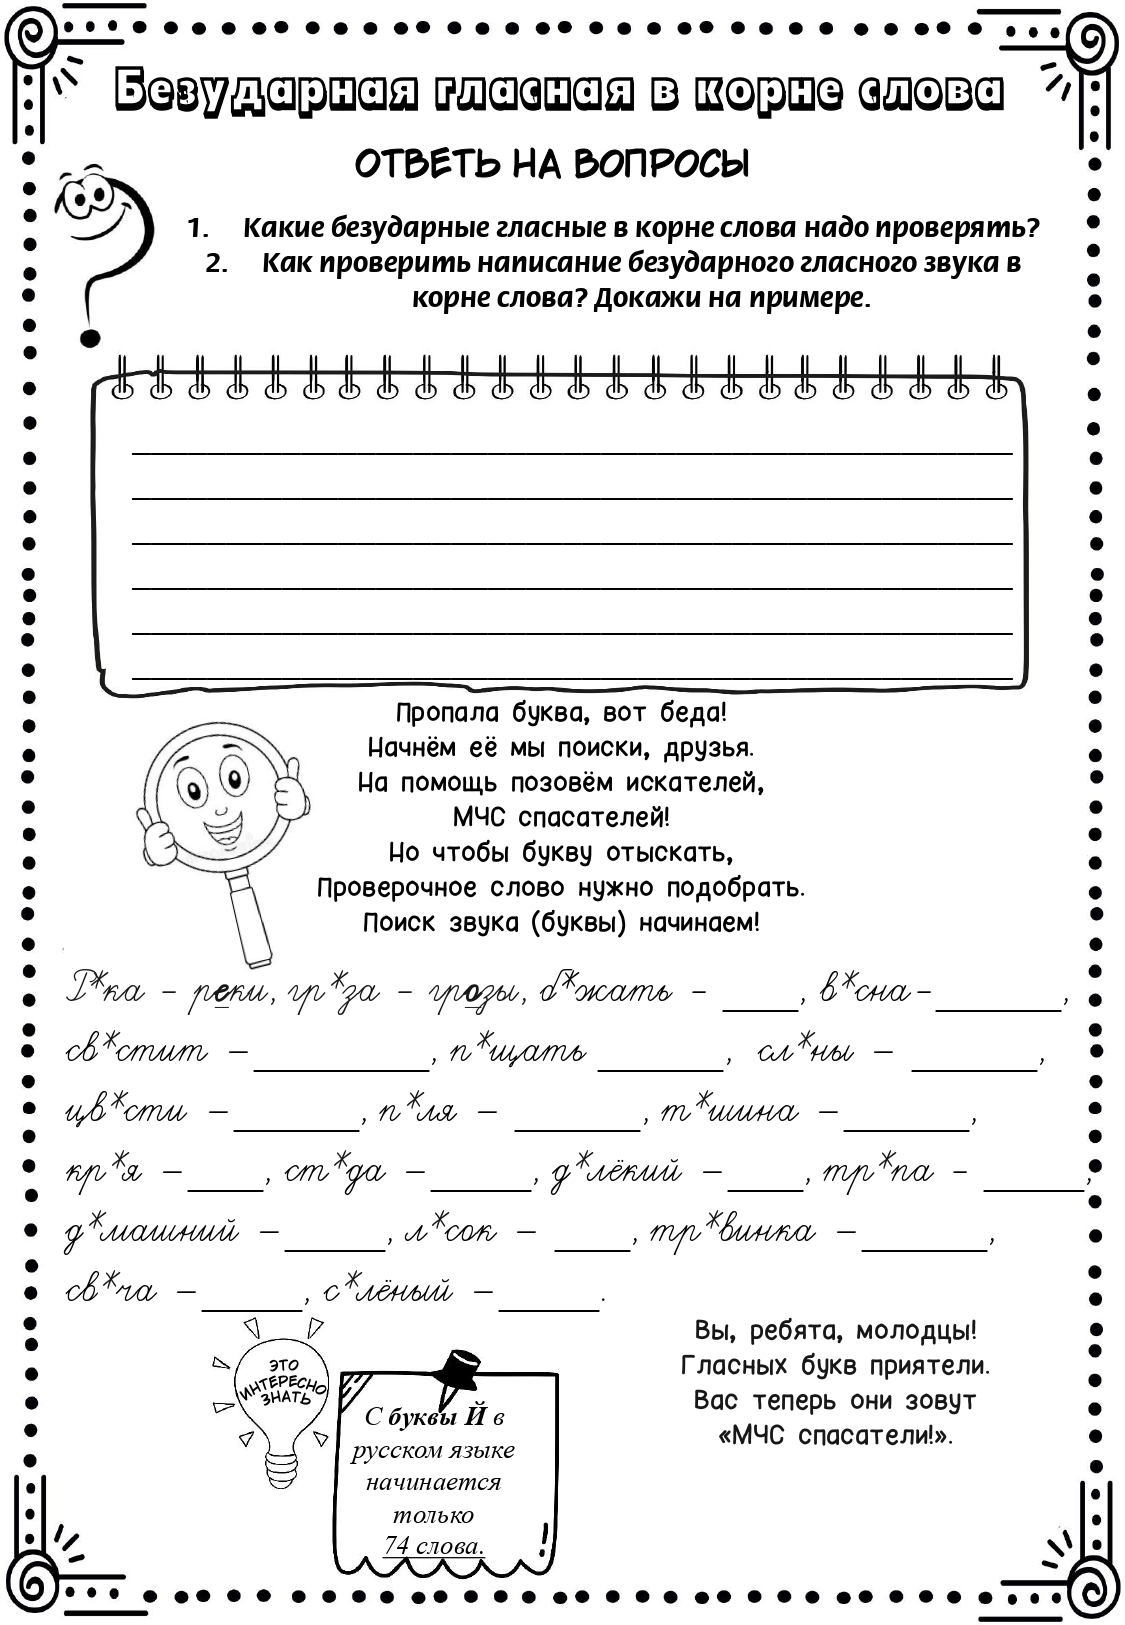 Безударная гласная в корне слова
ОТВЕТЬ НА ВОПРОСЫ
1. Какие безударные гласные в корне слова надо проверять?
2. Как проверить написание безударного гласного звука в
корне слова? Докажи на примере.
Пропала буква, вот беда!
Начнём её мы поиски, друзья.
На помощь позовём искателей,
МЧС спасателей!
Но чтобы букву отыскать,
Проверочное слово нужно подобрать.
Поиск звука (буквы) начинаем!
Р*ка – реки, гр*за – грозы, б*жать – ____, в*сна–________,
св*стит – ___________, п*щать ________, сл*ны – ________,
цв*сти – ________, п*ля – ________, т*шина – ________,
кр*я – _____, ст*да – ______, д*лёкий – _____, тр*па – ______,
д*машний – ______, л*сок – _____, тр*винка – ________,
св*ча – ______, с*лёный – ______.
ЭТО
ИНТЕРЕСНО
ЗНАТЬ
С буквы Й в
русском языке
начинается
только
74 слова.
Вы, ребята, молодцы!
Гласных букв приятели.
Вас теперь они зовут
«МЧС спасатели!».